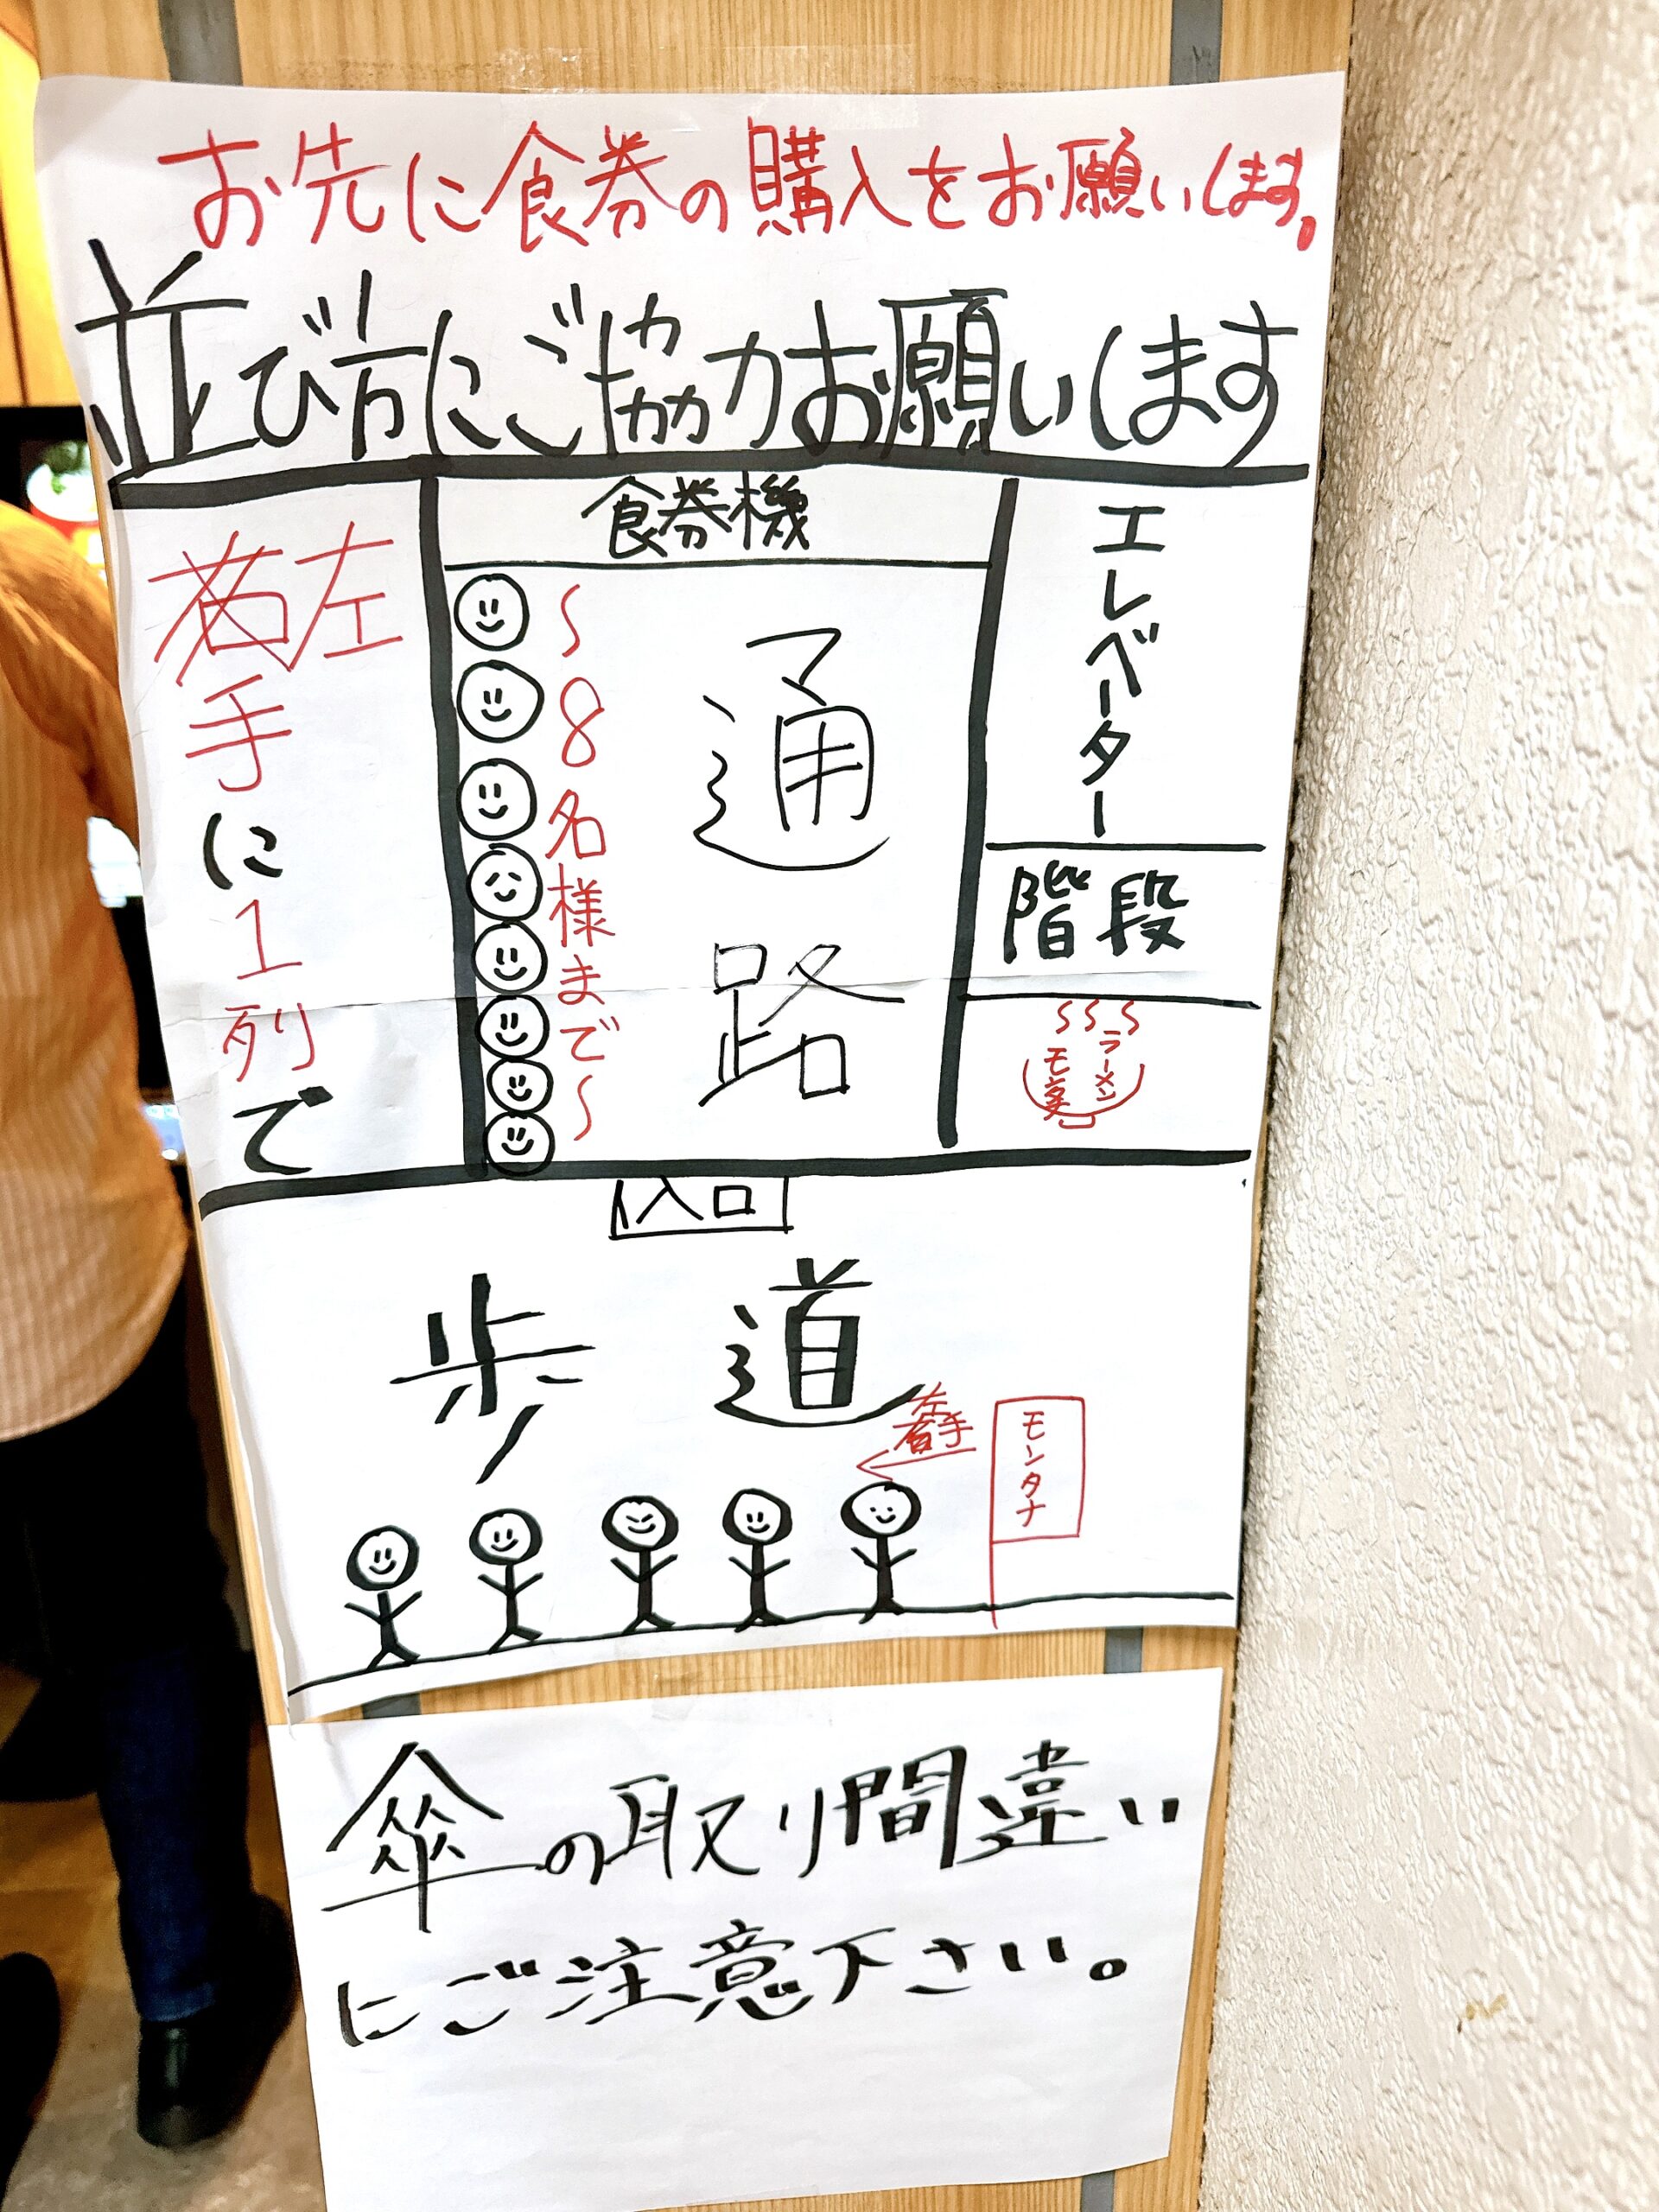 お先に食券の購入をお願いします。
並び方にご協力お願いします
左手に1列で
食券機
〜8名様まで〜
通路
エレベーター
階段
ラーメン
入口
歩道
左手
モンタナ
傘の取り間違い
にご注意下さい。